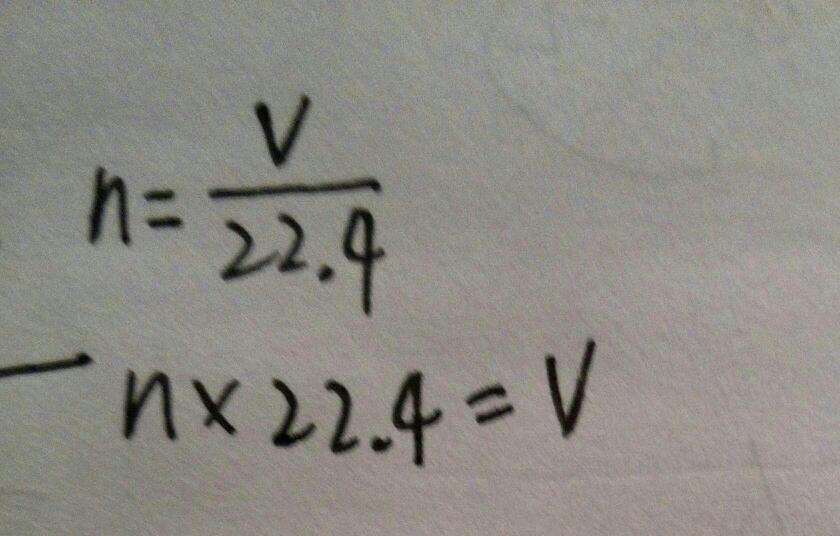 n = V/22.4
n × 22.4 = V